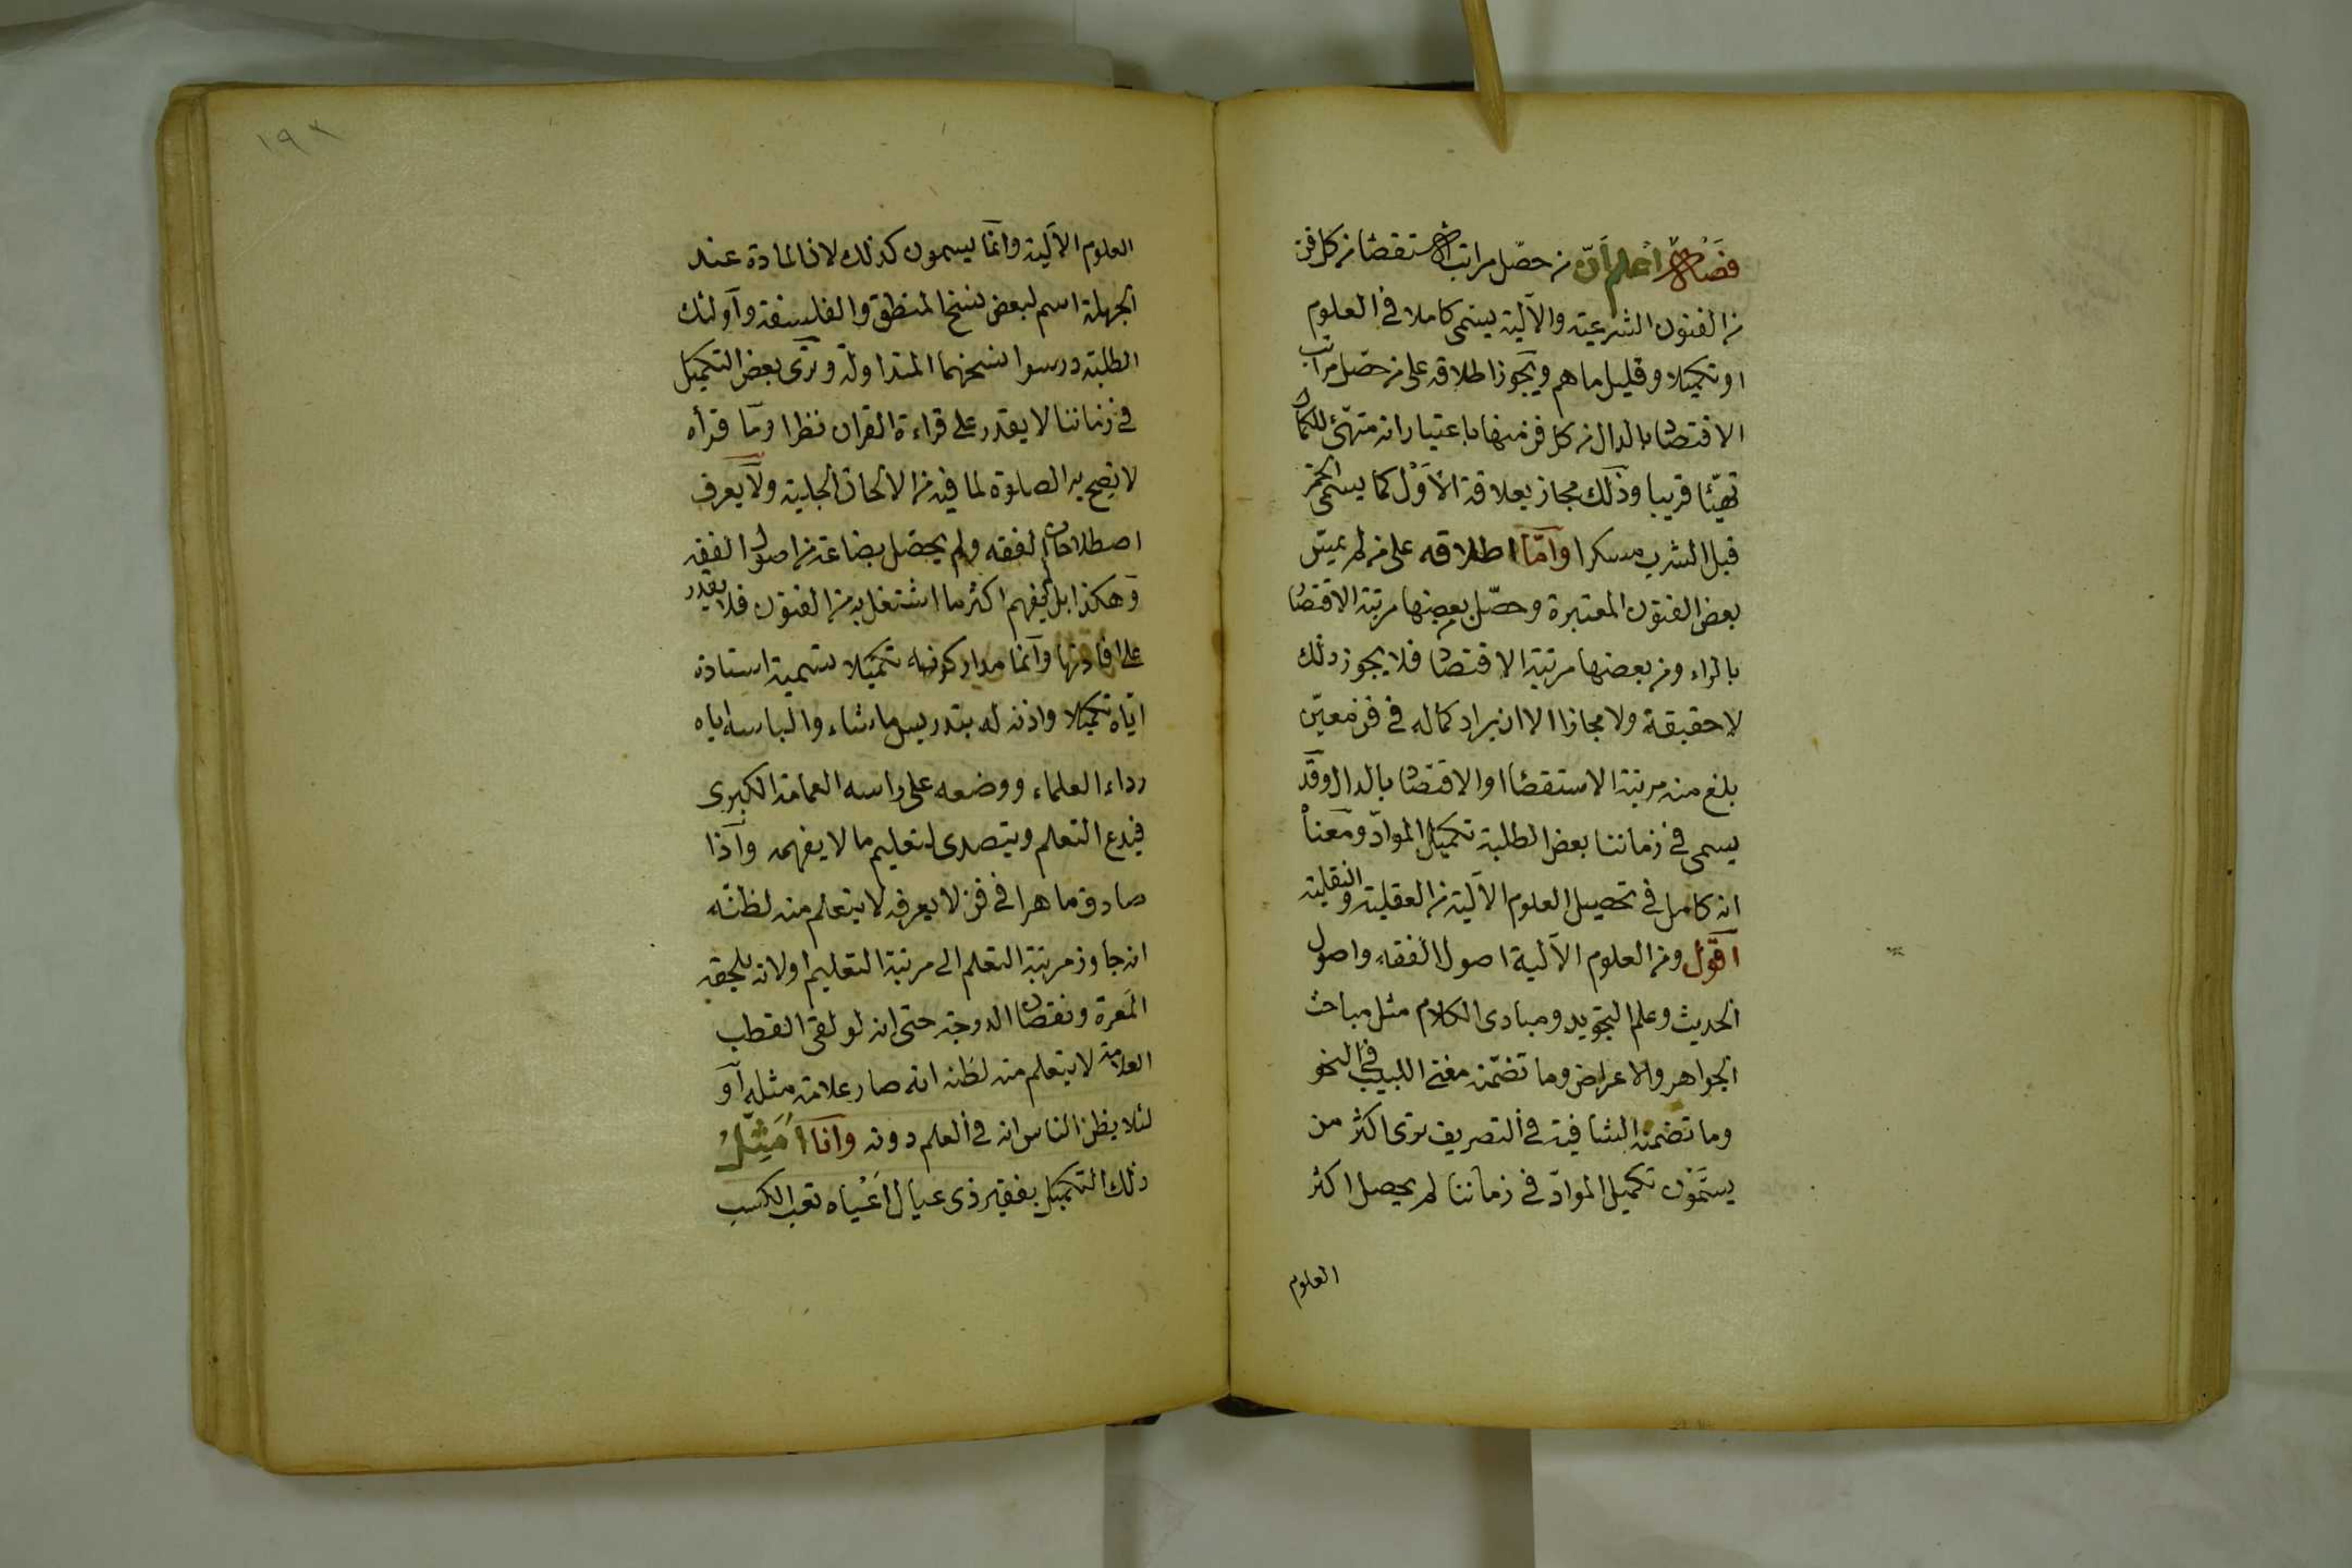 فصل اعلم ان من حصل مراتب الاستقصاء من كل فن
من الفنون الشرعية والآلية يسمى كاملا في العلوم
او تكميلا وقليل ما هم ويجوز اطلاقه على من حصل مراتب
الاقتصاد بالدال من كل فن منها باعتبار انه متهيئ للكمال
تهيئا قريبا وذلك مجاز بعلاقة الاول كما يسمى الخمر
قبل الشرب مسكرا واما اطلاقه على من لم يمس
بعض الفنون المعتبرة وحصل بعضها مرتبة الاقتصار
بالراء ومن بعضها مرتبة الاقتصاد فلا يجوز ذلك
لا حقيقة ولا مجازا الا ان يراد كماله في فن معين
بلغ منه مرتبة الاستقصاء او الاقتصاد بالدال وقد
يسمى في زماننا بعض الطلبة تكميل المواد ومعناه
انه كامل في تحصيل العلوم الآلية من العقلية والنقلية
اقول ومن العلوم الآلية اصول الفقه واصول
الحديث وعلم التجويد ومبادى الكلام مثل مباحث
الجواهر والاعراض وما تضمنه مغنى اللبيب في النحو
وما تضمنه الشافية في التصريف ترى اكثر من
يسمون تكميل المواد في زماننا لم يحصل اكثر
العلوم
١٩٣
العلوم الآلية وانما يسمون كذلك لان المادة عند
الجهلة اسم لبعض نسخ المنطق والفلسفة واولئك
الطلبة درسوا نسخهما المتداولة وترى بعض التكميل
في زماننا لا يقدر على قراءة القران نظرا وما قرأه
لا يصح به الصلوة لما فيه من الالحان الجلية ولا يعرف
اصطلاحات الفقه ولم يحصل بضاعة من اصول الفقه
وهكذا بل لم يفهم اكثر ما اشتغل به من الفنون فلا يقدر
على افادتها وانما مدار كونه تكميلا تسمية استاذه
اياه تكميلا واذنه له بتدريس ما شاء والباسه اياه
رداء العلماء ووضعه على راسه العمامة الكبرى
فيدع التعلم ويتصدى لتعليم ما لا يفهمه واذا
صادف ماهرا في فن لا يعرفه لا يتعلم منه لظنه
انه جاوز مرتبة التعلم الى مرتبة التعليم اولانه يلحقه
المعرة ونقصان الدرجة حتى انه لو لقى القطب
العلامة لا يتعلم منه لظنه انه صار علامة مثله او
لئلا يظن الناس انه في العلم دونه وانا امثل
ذلك التكميل بفقير ذى عيال اعياه تعب الكسب